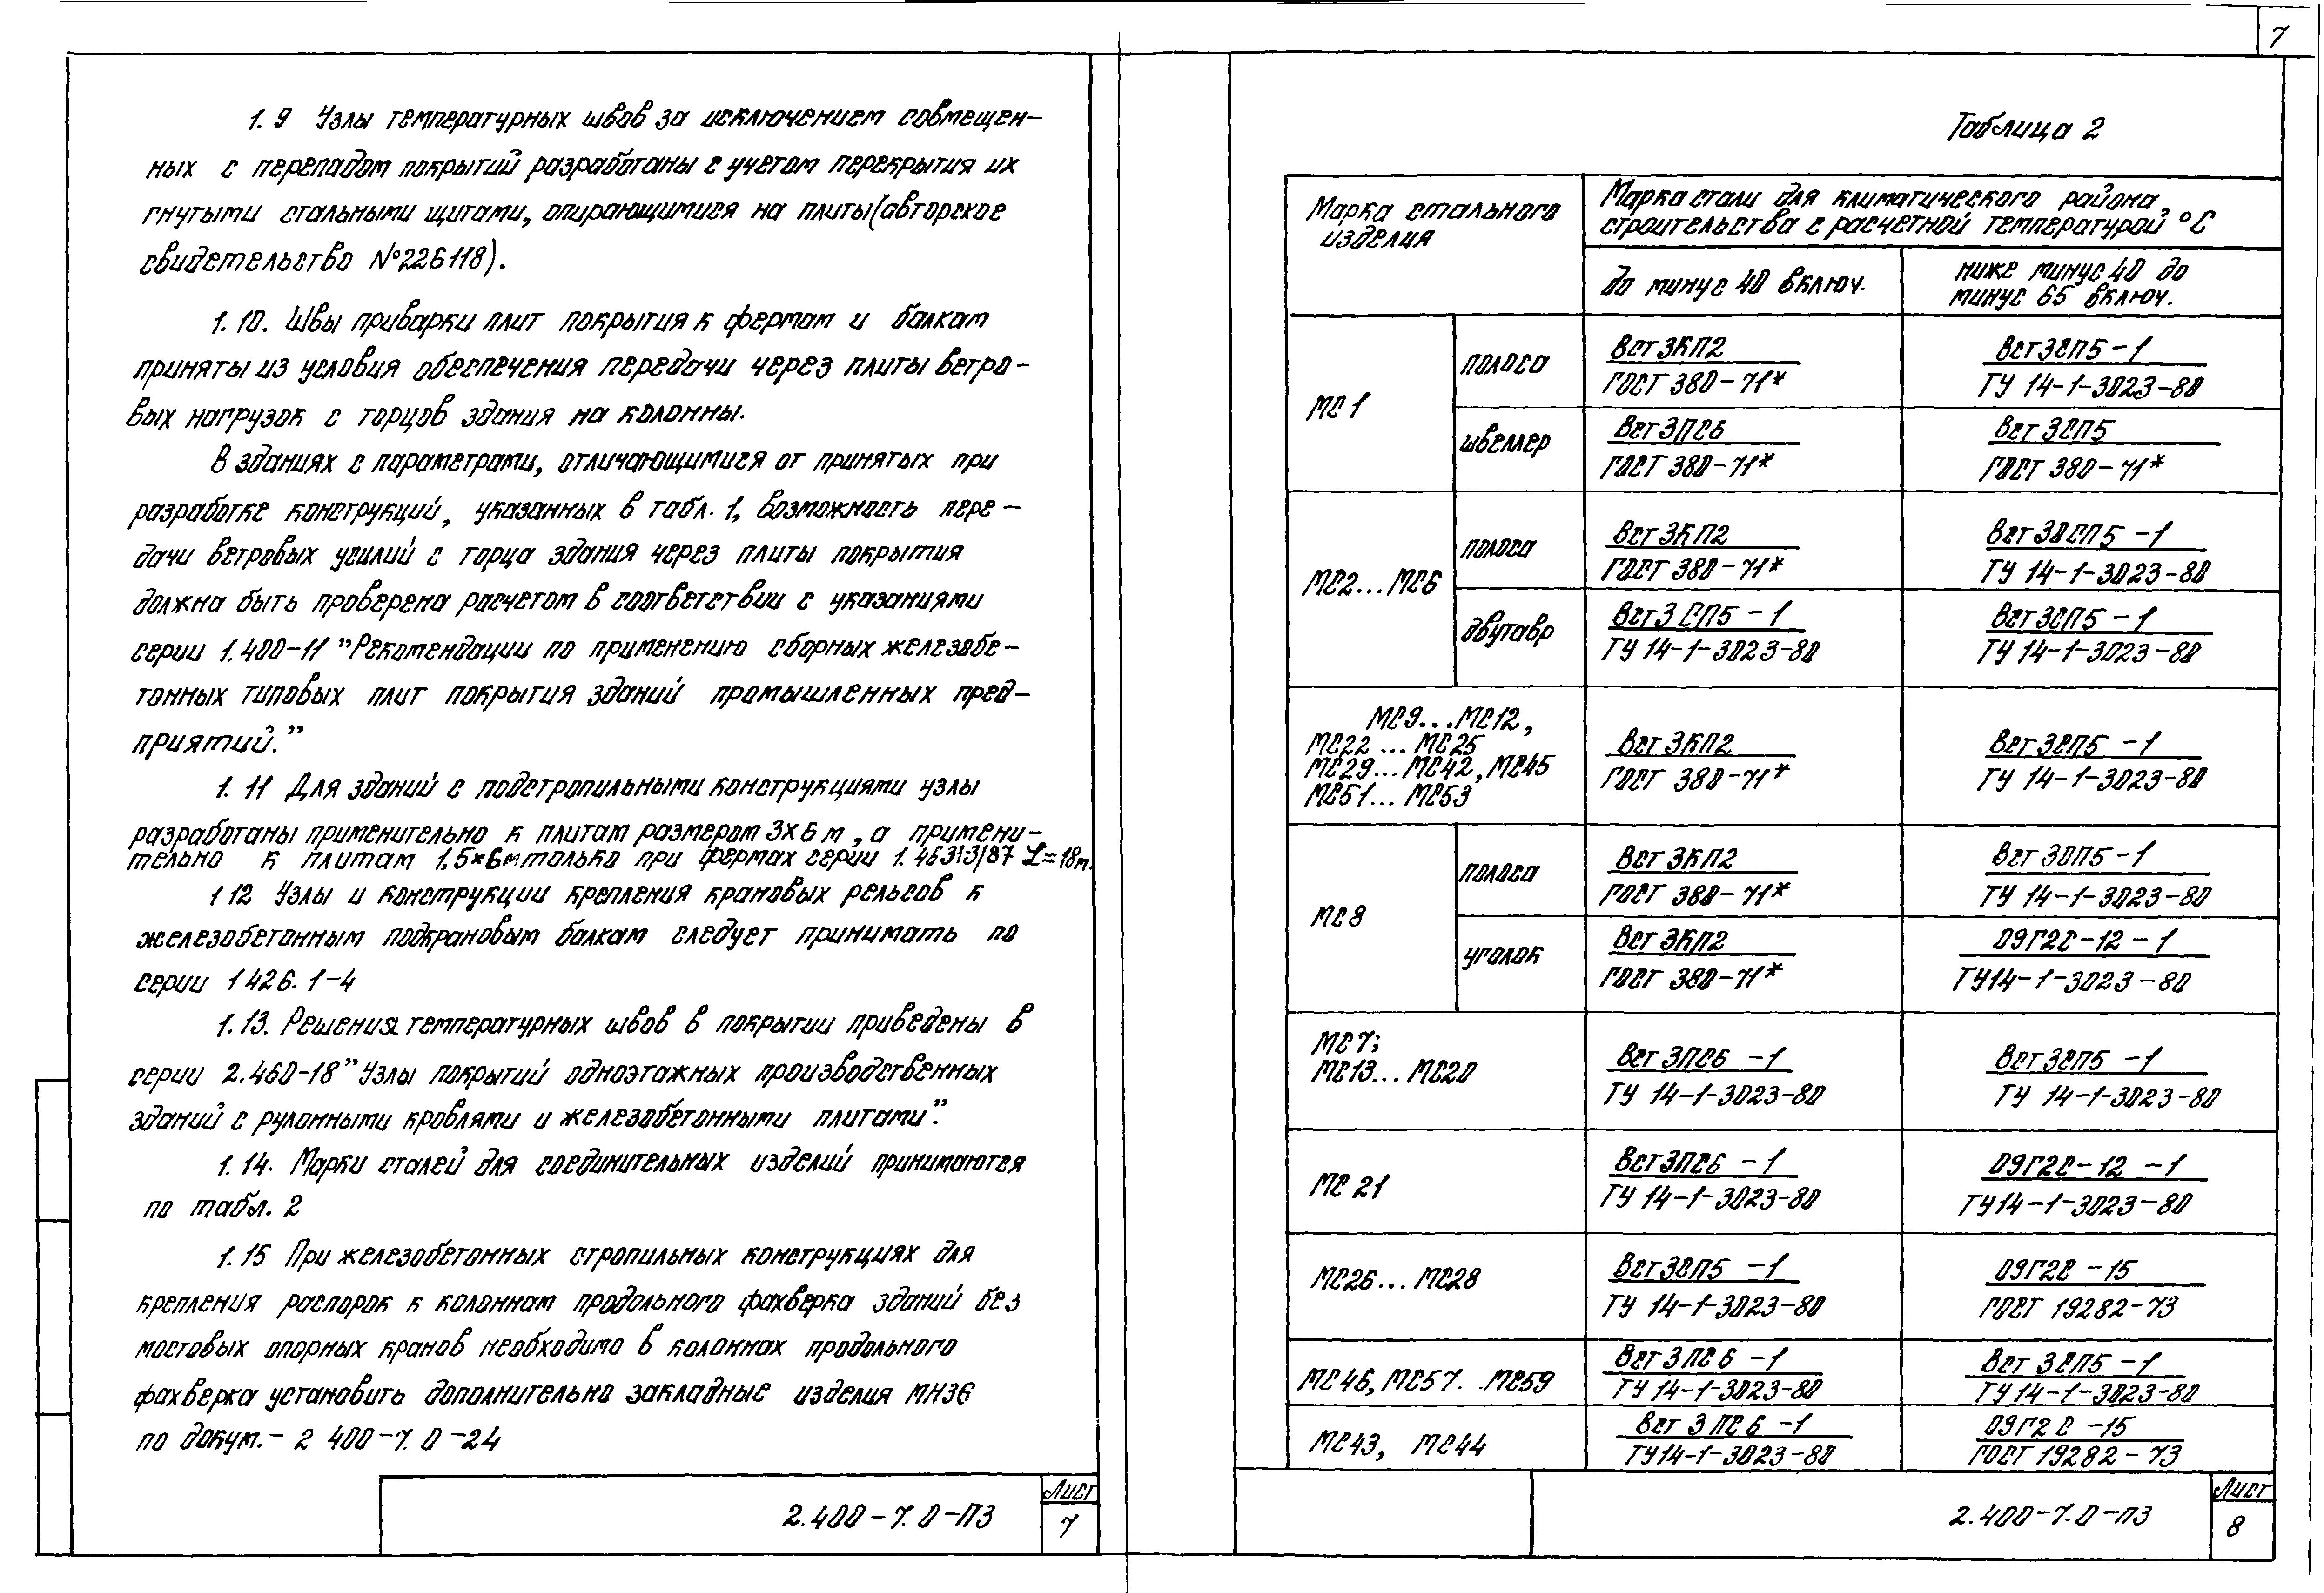 7
1.9 Узлы температурных швов за исключением совмещен-
ных с перепадом покрытий разработаны с учетом перекрытия их
гнутыми стальными щитами, опирающимися на плиты (авторское
свидетельство №226118).
1.10. Швы приварки плит покрытия к фермам и балкам
приняты из условия обеспечения передачи через плиты ветро-
вых нагрузок с торцов здания на колонны.
В зданиях с параметрами, отличающимися от принятых при
разработке конструкций, указанных в табл. 1, возможность пере-
дачи ветровых усилий с торца здания через плиты покрытия
должна быть проверена расчетом в соответствии с указаниями
серии 1.400-11 "Рекомендации по применению сборных железобе-
тонных типовых плит покрытия зданий промышленных пред-
приятий."
1.11 Для зданий с подстропильными конструкциями узлы
разработаны применительно к плитам размером 3х6 м, а примени-
тельно к плитам 1.5×6м только при фермах серии 1.463.1-3/87 L=18м.
1 12 Узлы и конструкции крепления крановых рельсов к
железобетонным подкрановым балкам следует принимать по
серии 1 426. 1-4
1.13. Решения температурных швов в покрытии приведены в
серии 2.460-18 "Узлы покрытий одноэтажных производственных
зданий с рулонными кровлями и железобетонными плитами".
1.14. Марки сталей для соединительных изделий принимаются
по табл. 2
1.15 При железобетонных стропильных конструкциях для
крепления распорок к колоннам продольного фахверка зданий без
мостовых опорных кранов необходимо в колоннах продольного
фахверка установить дополнительно закладные изделия МН36
по докум.- 2 400-7. 0-24
2.400-7.0-ПЗ
Лист
7
Таблица 2
Марка стального изделия
Марка стали для климатического района
строительства с расчетной температурой °С
до минус 40 включ.
ниже минус 40 до
минус 65 включ.
МС1
полоса
ВСт3КП2
ГОСТ 380-71*
ВСт3СП5-1
ТУ 14-1-3023-80
швеллер
ВСт3ПС6
ГОСТ 380-71*
ВСт3СП5
ГОСТ 380-71*
МС2...МС6
полоса
ВСт3КП2
ГОСТ 380-71*
ВСт3СП5-1
ТУ 14-1-3023-80
двутавр
ВСт3СП5-1
ТУ 14-1-3023-80
ВСт3СП5-1
ТУ 14-1-3023-80
МС9...МС12,
МС22...МС25
МС29...МС42, МС45
МС51...МС53
ВСт3КП2
ГОСТ 380-71*
ВСт3СП5-1
ТУ 14-1-3023-80
МС8
полоса
ВСт3КП2
ГОСТ 380-71*
ВСт3СП5-1
ТУ 14-1-3023-80
уголок
ВСт3КП2
ГОСТ 380-71*
09Г2С-12-1
ТУ14-1-3023-80
МС7;
МС13...МС20
ВСт3ПС6-1
ТУ 14-1-3023-80
ВСт3СП5-1
ТУ 14-1-3023-80
МС 21
ВСт3ПС6-1
ТУ 14-1-3023-80
09Г2С-12-1
ТУ14-1-3023-80
МС26...МС28
ВСт3СП5-1
ТУ 14-1-3023-80
09Г2С-15
ГОСТ 19282-73
МС46, МС57. .МС59
ВСт3ПС6-1
ТУ 14-1-3023-80
ВСт3СП5-1
ТУ 14-1-3023-80
МС43, МС44
ВСт3ПС6-1
ТУ14-1-3023-80
09Г2С-15
ГОСТ 19282-73
2.400-7.0-ПЗ
Лист
8